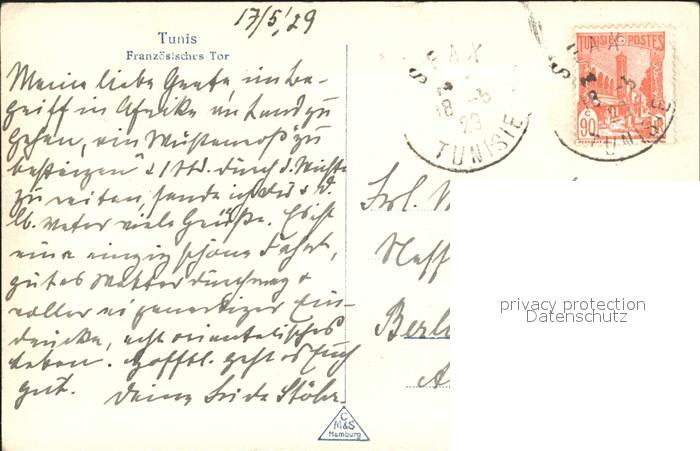 17/5/29
Tunis
Französisches Tor
Meine liebe Grete, im Be-
griff in Afrika an Land zu
gehen, ein "Wüstenroß" zu
besteigen & 1 Std. durch d. Wüste
zu reiten, sende ich dir & d.
lb. Vater viele Grüße. Es ist
eine einzig schöne Fahrt,
gutes Wetter durchweg &
voller eigenartiger Ein-
drücke, echt orientalisches
Leben. Hofftl. geht es Euch
gut. Deine Frida Stöhr.
SFAX
18 -5
29
TUNISIE
SFAX
18 -5
TUNISIE
TUNISIE POSTES
90
Frl.
Berl
C
M&S
Hamburg
privacy protection
Datenschutz